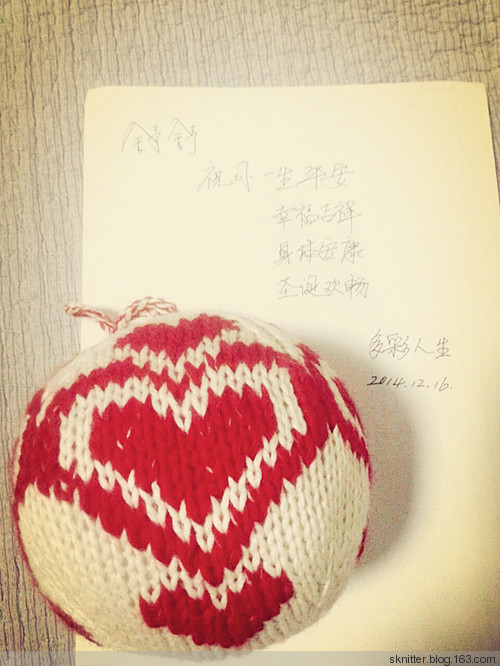 舒舒
祝你一生平安
幸福吉祥
身体安康
圣诞欢畅
多彩人生
2014.12.16.
sknitter.blog.163.com